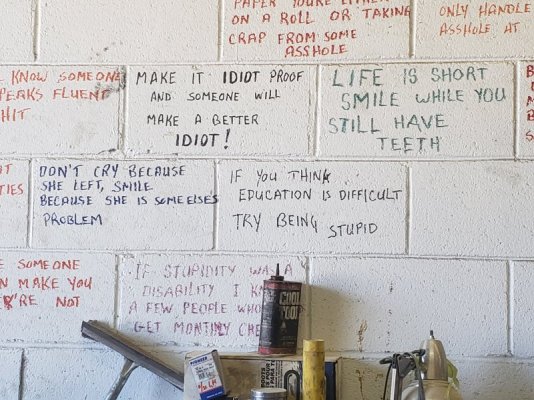 PAPER YOU'RE EITHER
ON A ROLL OR TAKING
CRAP FROM SOME
ASSHOLE
ONLY HANDLE
ASSHOLE AT
KNOW SOMEONE
PEAKS FLUENT
HIT
MAKE IT IDIOT PROOF
AND SOMEONE WILL
MAKE A BETTER
IDIOT!
LIFE IS SHORT
SMILE WHILE YOU
STILL HAVE
TEETH
DON'T CRY BECAUSE
SHE LEFT, SMILE
BECAUSE SHE IS SOMEELSE'S
PROBLEM
IF YOU THINK
EDUCATION IS DIFFICULT
TRY BEING STUPID
SOMEONE
MAKE YOU
NOT
IF STUPIDITY WAS A
DISABILITY I K
A FEW PEOPLE WHO
GET MONTHLY CHE
COOL
TOOL